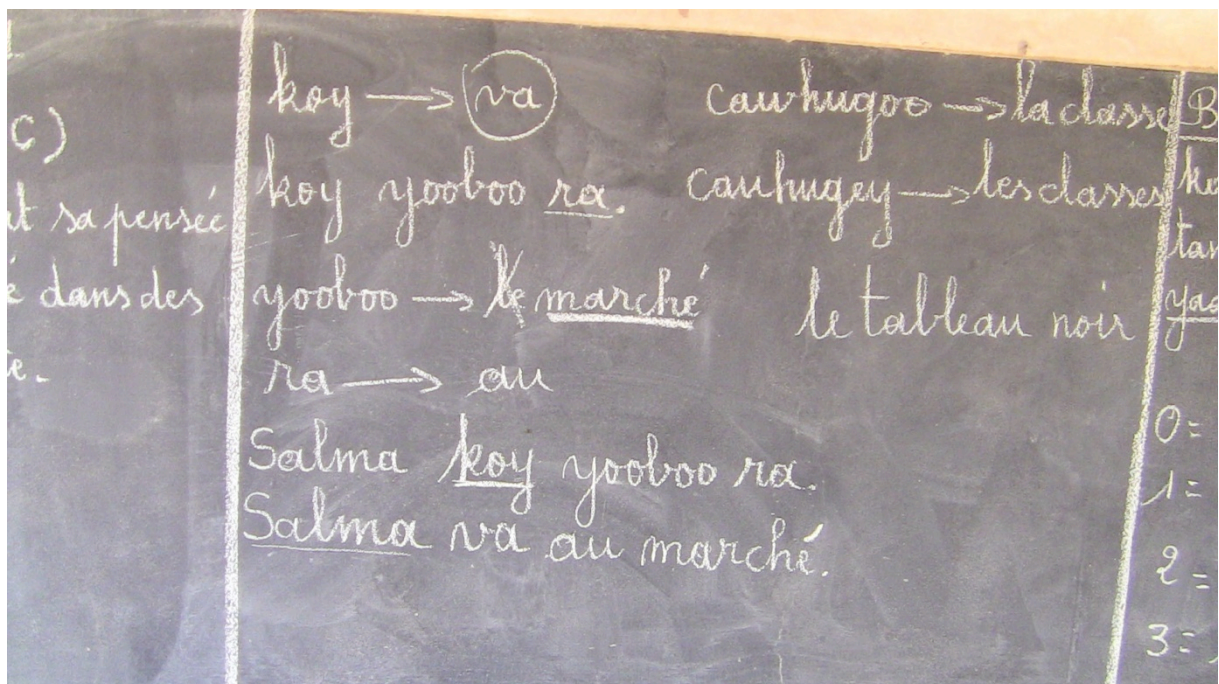 C)
sa pensée
dans des
koy → va
koy yooboo ra.
yooboo → le marché
ra → au
Salma koy yooboo ra.
Salma va au marché.
cawhugoo → la classe
cauhugey → les classes
le tableau noir
B
0 =
1 =
2 =
3 =